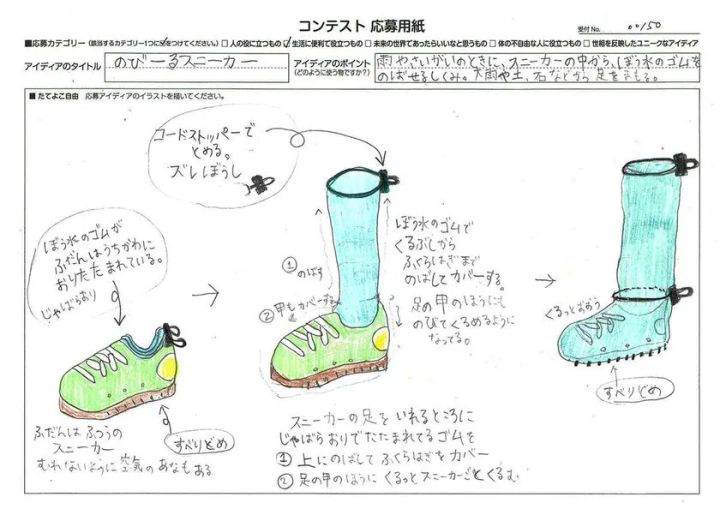 コンテスト 応募用紙
受付No. 00150
■応募カテゴリー (該当するカテゴリー1つに☑をつけてください。) □ 人の役に立つもの ☑ 生活に便利で役立つもの □ 未来の世界であったらいいなと思うもの □ 体の不自由な人に役立つもの □ 世相を反映したユニークなアイディア
アイディアのタイトル
のびーるスニーカー
アイディアのポイント
(どのように使う物ですか?)
雨やさいがいのときに、スニーカーの中から、ぼう水のゴムを
のばせるしくみ。大雨や土、石などから足をまもる。
■ たてよこ自由 応募アイディアのイラストを描いてください。
コードストッパーで
とめる。
ズレぼうし
ぼう水のゴムが
ふだんはうちがわに
おりたたまれている。
じゃばらおり
①のばす
②甲もカバーする
ぼう水のゴムで
くるぶしから
ふくらはぎまで
のばしてカバーする。
足の甲のほうにも
のびてくるめるように
なってる。
くるっとおおう
すべりどめ
すべりどめ
ふだんは ふつうの
スニーカー
むれないように 空気のあなもある
スニーカーの足を いれるところに
じゃばらおりでたたまれてるゴムを
① 上にのばして ふくらはぎをカバー
② 足の甲のほうに くるっとスニーカーごとくるむ